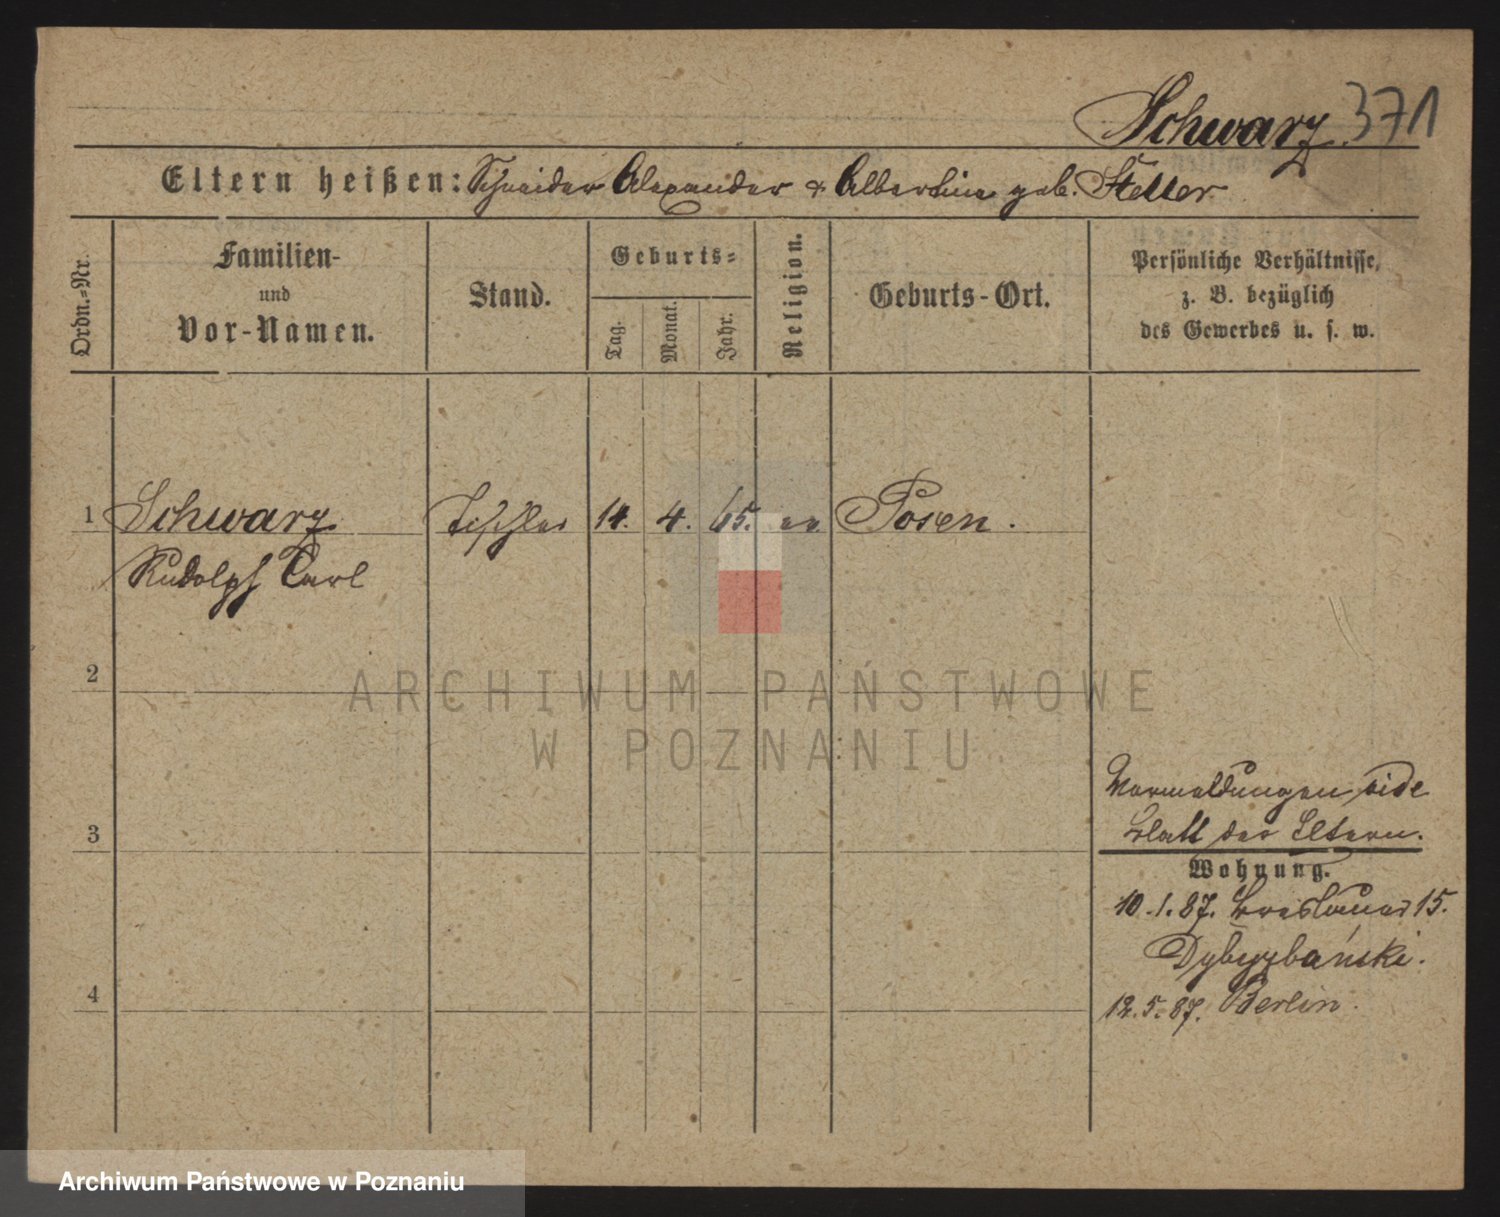 Schwarz. 371
Eltern heißen: Schneider Alexander & Albertine geb. Steller
Ordn.-Nr.
Familien-
und
Vor-Namen.
Stand.
Geburts-
Tag.
Monat.
Jahr.
Religion.
Geburts-Ort.
Persönliche Verhältnisse,
z. B. bezüglich
des Gewerbes u. s. w.
1 Schwarz Tischler 14. 4. 65. ev Posen.
Rudolph Carl
2
ARCHIWUM PAŃSTWOWE
W POZNANIU
Vormeldungen vide
3 Blatt der Eltern.
Wohnung.
10.1.87. Breslauer 15.
4
12.5.87. Berlin.
Archiwum Państwowe w Poznaniu